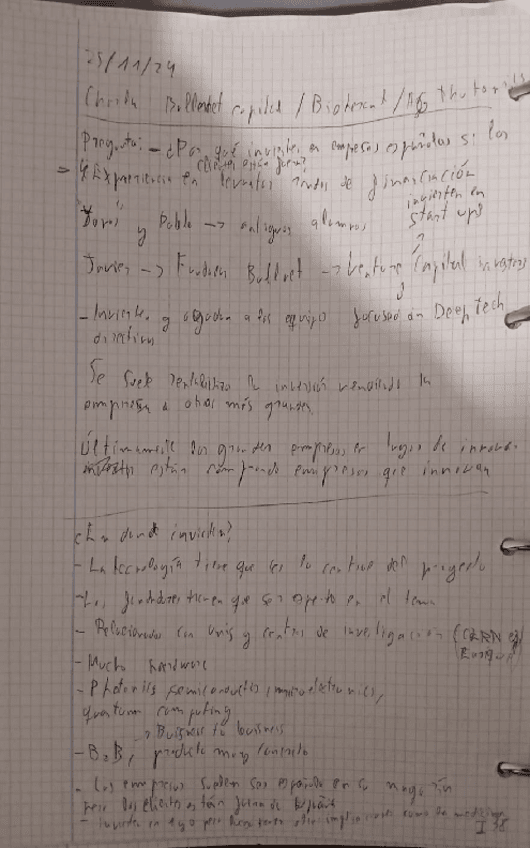 25/11/24
Charla Bullnet capital / / Photonics
Pregunta: - ¿Por qué invierten en empresas españolas si los
clientes están fuera?
=> Experiencia en rondas de financiación
invierten en
y Pablo -> antiguos alumnos start ups
Javier -> Bullnet -> Venture Capital
- Invierten y ayudan a los equipos focused on DeepTech
directivos
Se suele rentabilizar la inversión vendiendo la
empresa a otras más grandes
Últimamente las grandes empresas en lugar de innovar
están comprando empresas que innovan
¿En donde invierten?
- La tecnología tiene que ser lo central del proyecto
- Los fundadores tienen que ser experto en el tema
- Relacionados con unis y centros de investigación (CERN
- Mucho hardware
- Photonics semiconductors, microelectronics,
quantum computing
-> Business to business
- B2B, producto muy concreto
- Las empresas suelen ser española en su mayoría
pero los clientes están fuera de España
- Invierten en algo pero